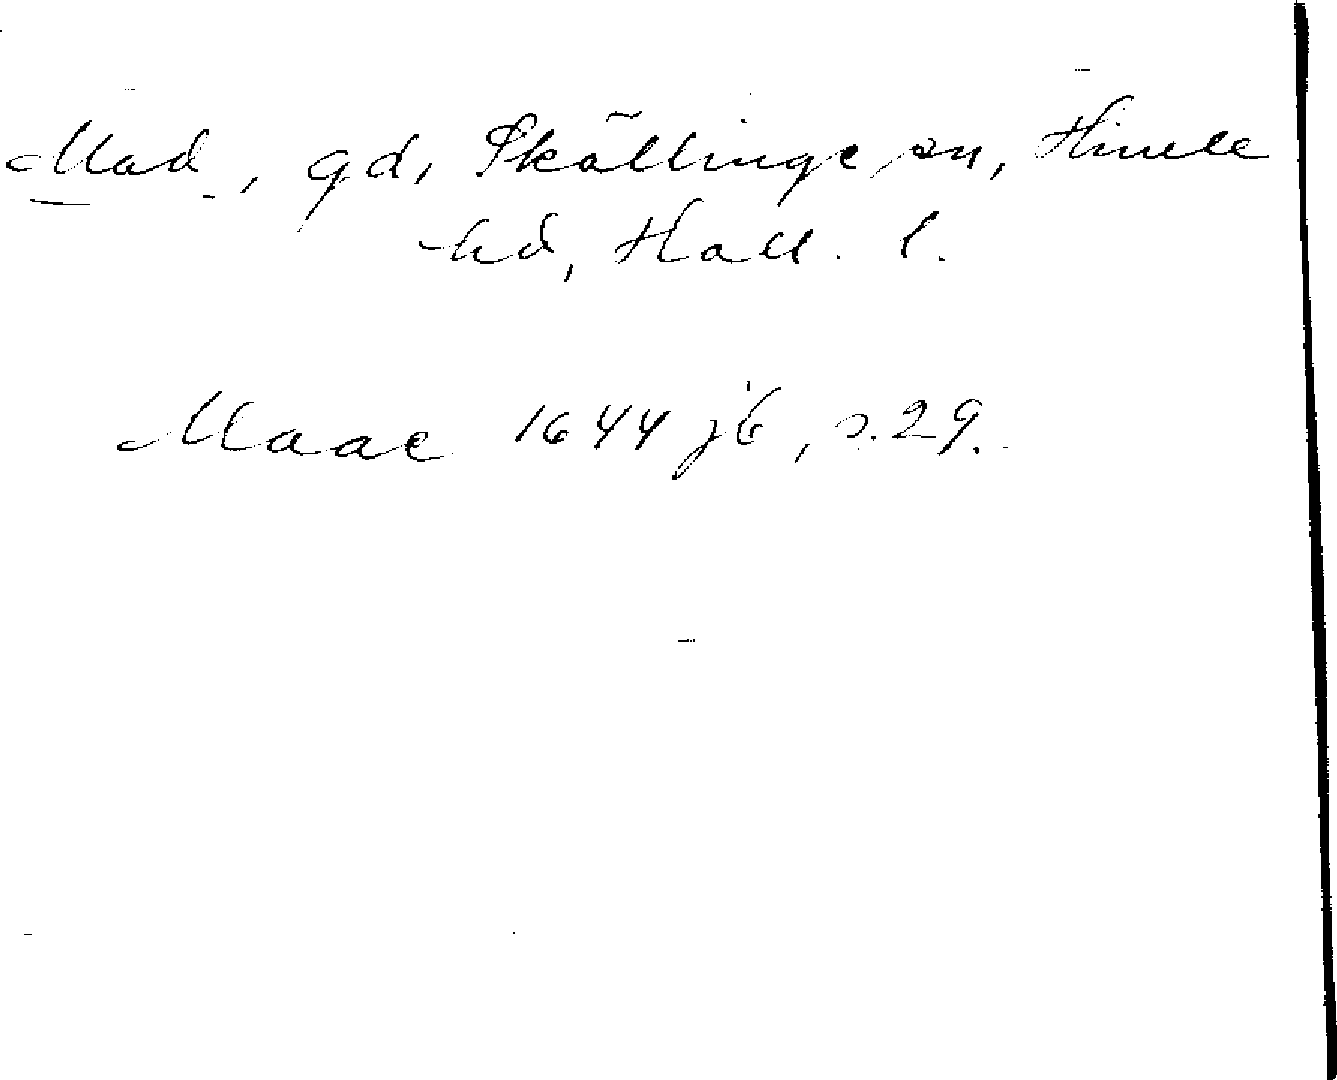 Mad, gd, Skällinge sn, Himle
hd, Hall. l.
Maae 1644 jb, s. 29.